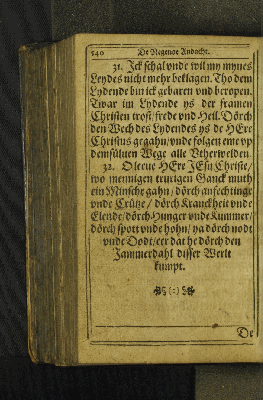 540 De Negenoe Andacht.
31. Ick schal vnde wil my mynes
Leydes nicht mehr beklagen. Tho dem
Lydende bin ick gebaren vnd beropen.
Twar im Lydende ys der framen
Christen trost / frede vnd Heil. Dörch
den Wech des Lydendes ys de HEre
Christus gegahn / vnde folgen eme vp
demsüluen Wege alle Vtherwelden.
32. O leeue HEre JEsu Christe /
wo mennigen trurigen Ganck muth
ein Minsche gahn / dörch anfechtinge
vnde Crütze / dörch Kranckheit vnde
Elende / dörch Hunger vnde Kummer /
dörch spott vnde hohn / ya dörch nodt
vnde Dodt / eer dat he dörch den
Jammerdahl disser Werlt
kumpt.
(:)
De